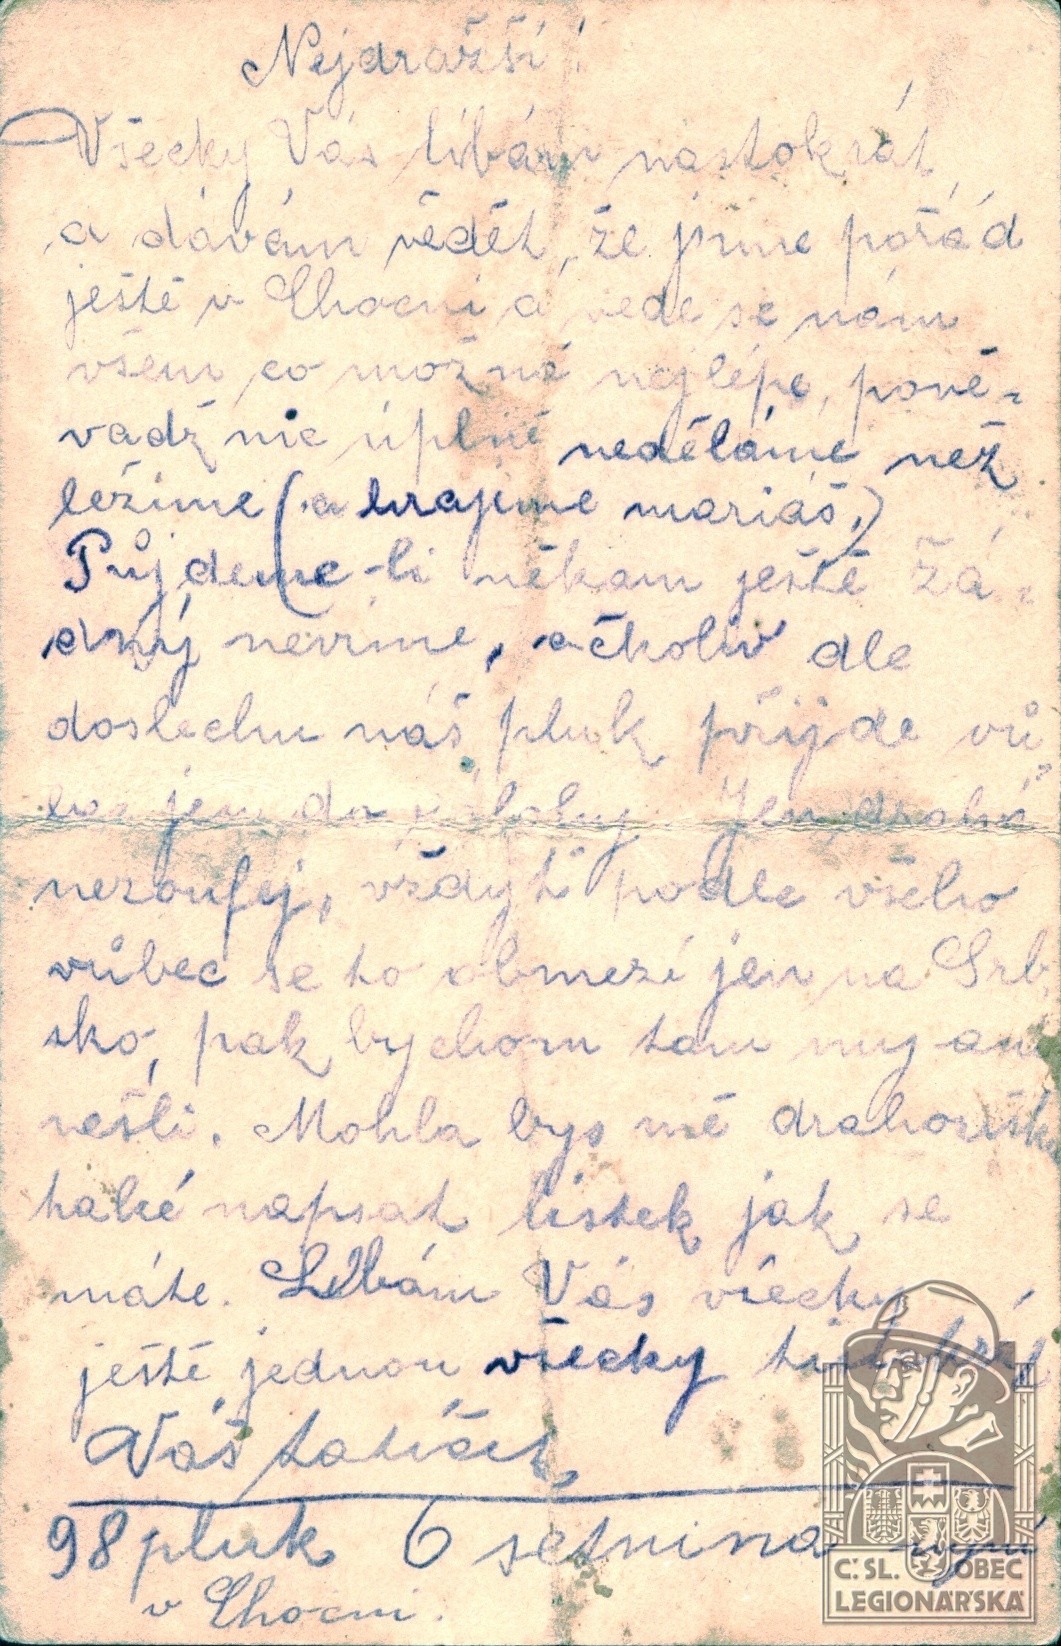 Nejdražší!
Všecky Vás líbám nastokrát
a dávám vědět, že jsme pořád
ještě v Chocni a vede se nám
všem co možná nejlépe, poně-
vadž nic úplně neděláme než
ležíme (a hrajeme mariáš.)
Půjdeme-li někam ještě žá-
dný nevíme, ačkoliv dle
doslechu náš pluk přijde vů-
bec jen do zálohy. Jen drahá
nezoufej, vždyť podle všeho
vůbec se to obmezí jen na Srb
sko, pak bychom tam my ani
nešli. Mohla bys mě drahouško
také napsat lístek jak se
máte. Líbám Vás všecky
ještě jednou všecky tisíckrát
Váš tatíček
98 pluk 6 setnina nyní
v Chocni.
Č.SL. OBEC
LEGIONÁŘSKÁ